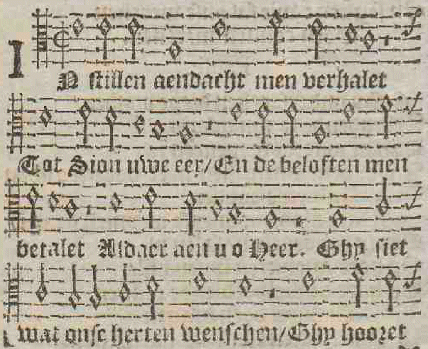 IN stillen aendacht men verhalet
Tot Sion uwe eer/En de beloften men
betalet Aldaer aen u o Heer. Ghy siet
wat onse herten wenschen/Ghy hooret